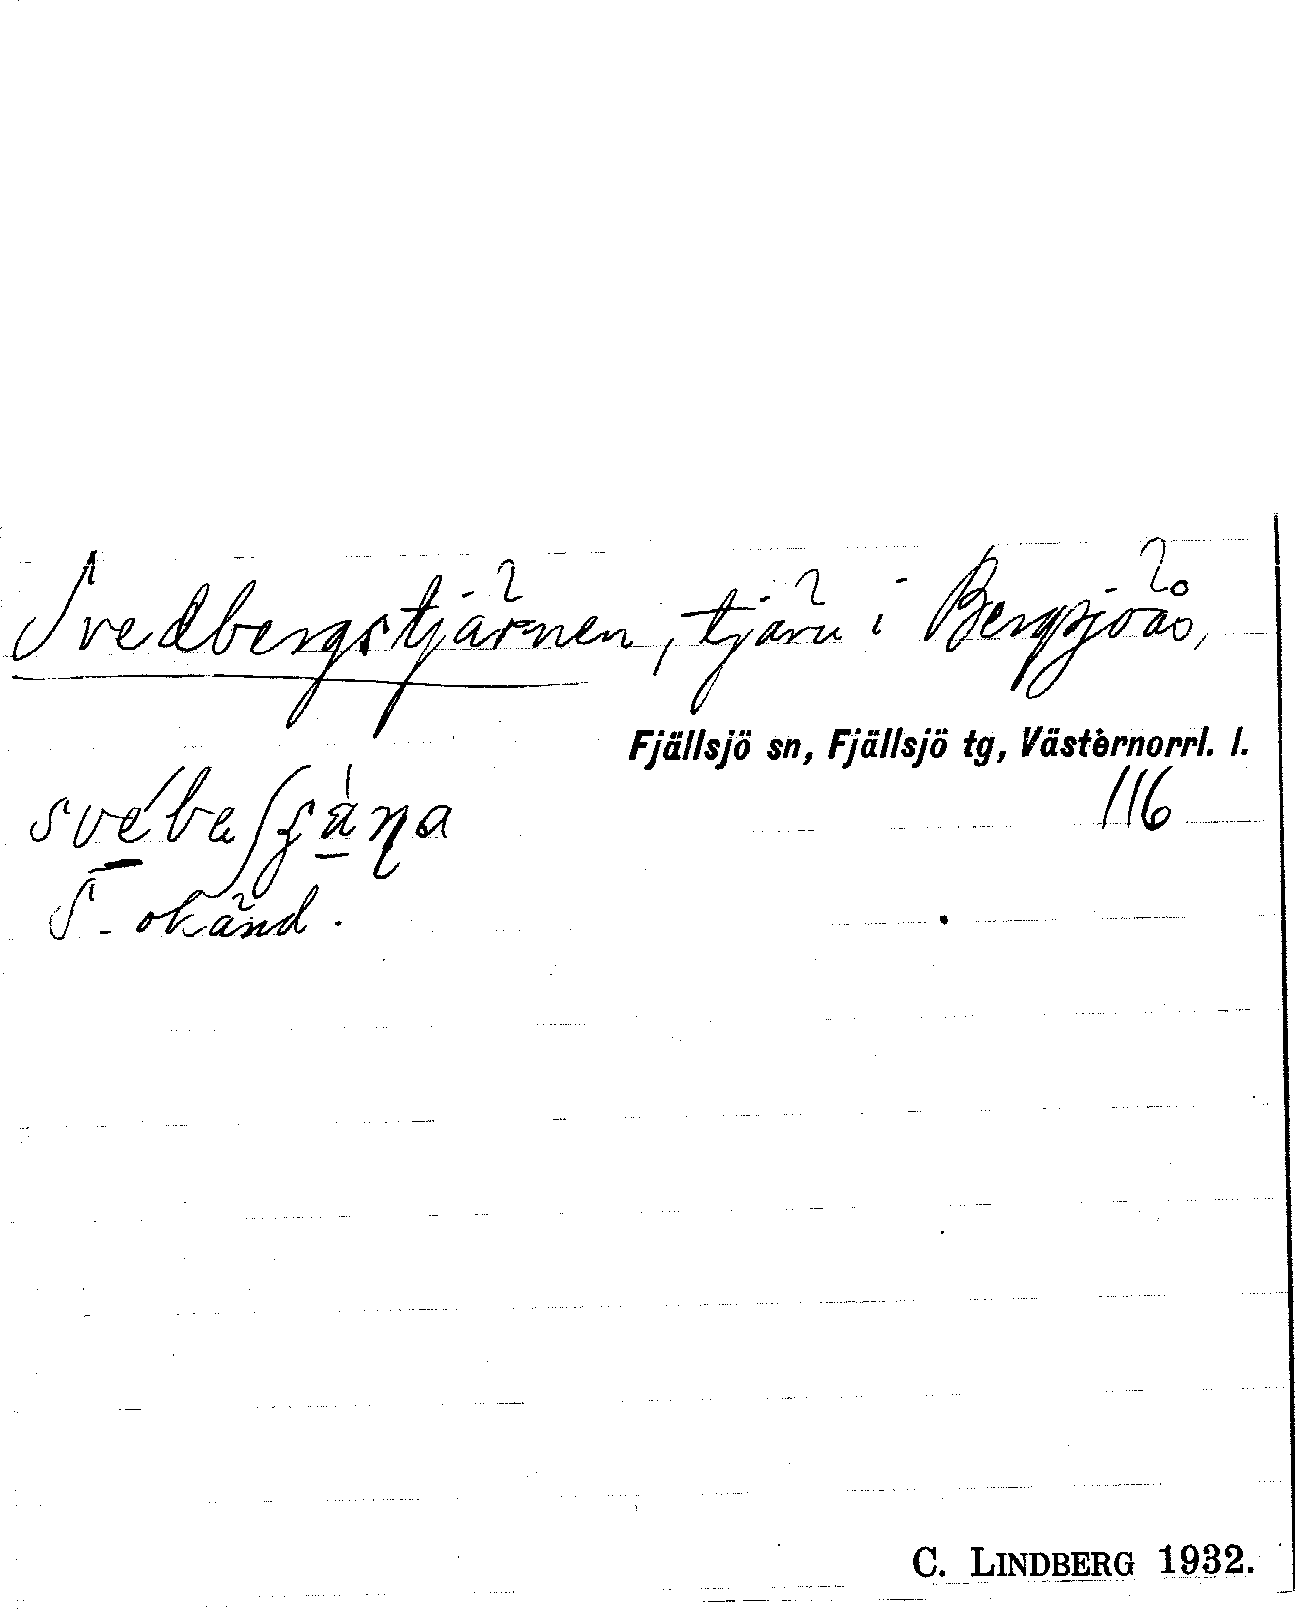 Svedbergstjärnen, tjärn i Bergsjöås,
Fjällsjö sn, Fjällsjö tg, Västernorrl. l.
116
S. okänd.
C. LINDBERG 1932.